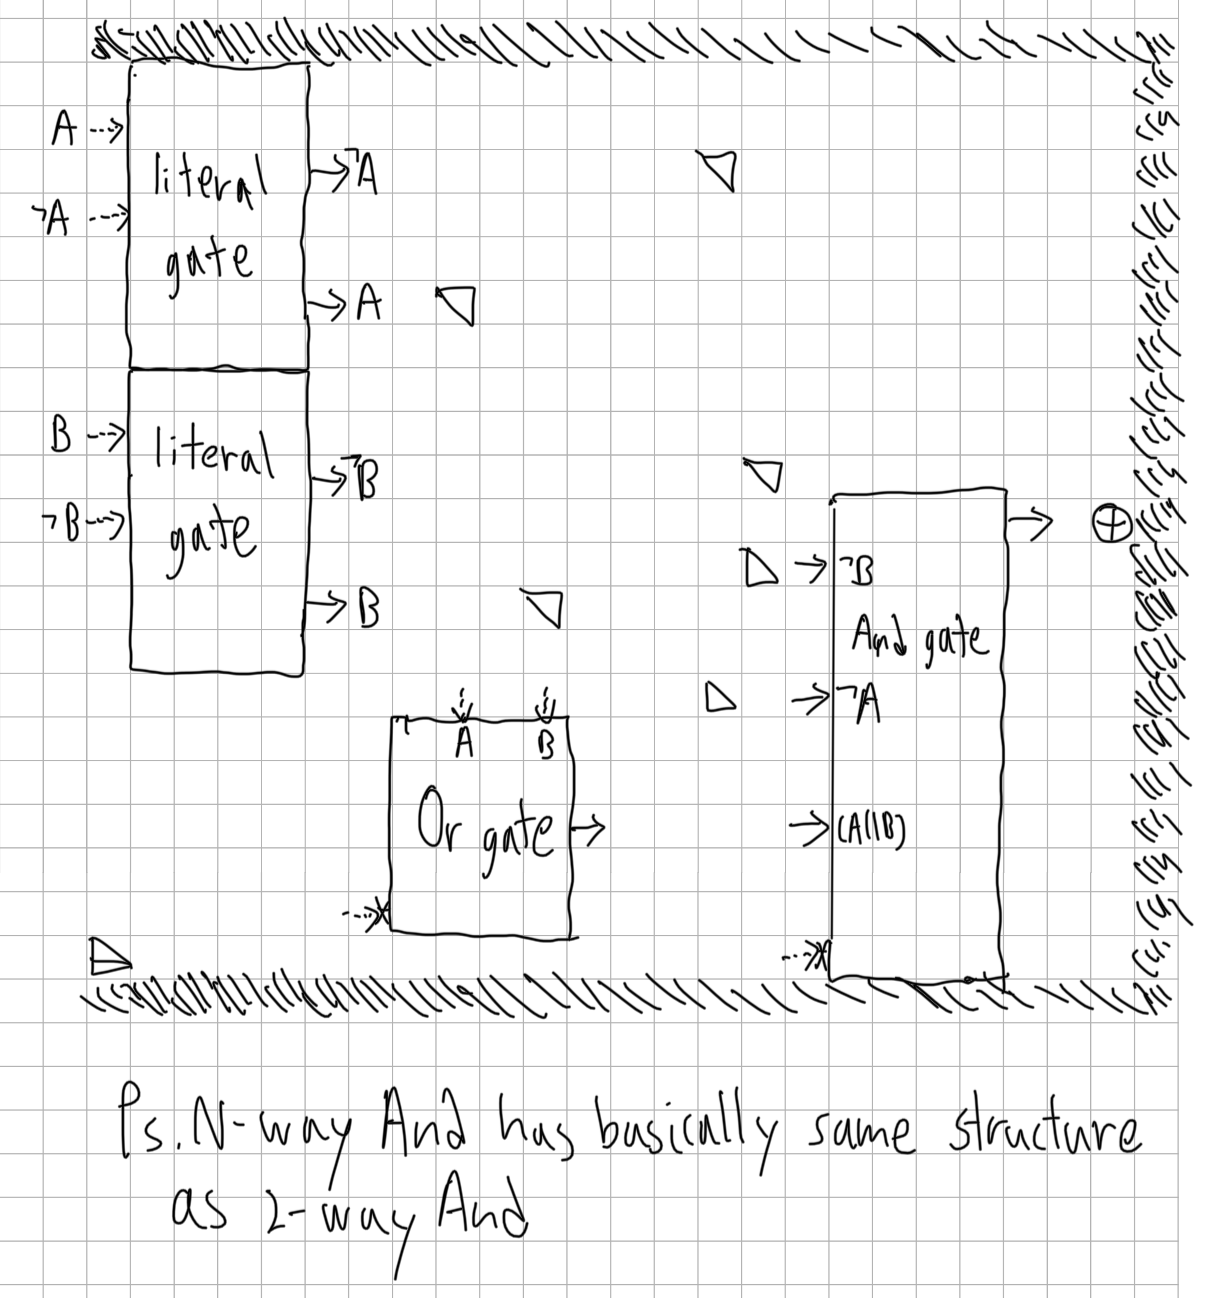 A
literal
gate
¬A
¬A
A
B
literal
gate
¬B
¬B
B
¬B
And gate
¬A
(A||B)
A
B
Or gate
Ps. N-way And has basically same structure
as 2-way And